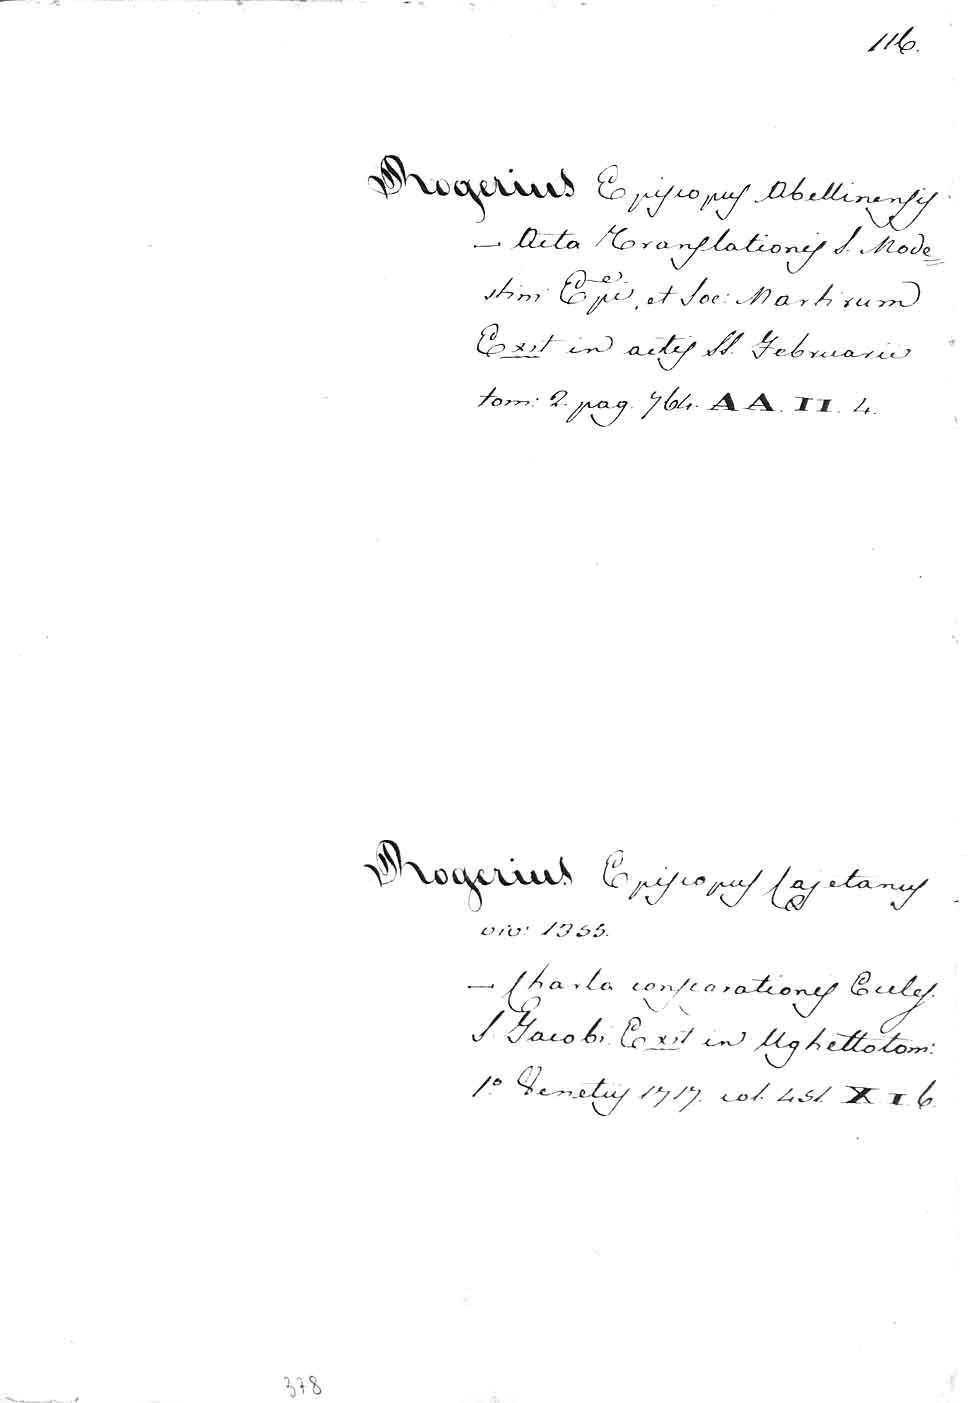 116.
Rogerius Episcopus Abellinensis
— Acta Translationis S. Mode=
stini Epi, et Soc: Martirum
Exst in actis SS. Februarii
tom: 2. pag. 764. AA. II. 4.
Rogerius Episcopus Cajetanus
viv: 1355.
— Charta consecrationis Eccles.
S. Jacobi. Exst in Ughetto tom:
1º Venetiis 1717. col. 451. X I 6.
378